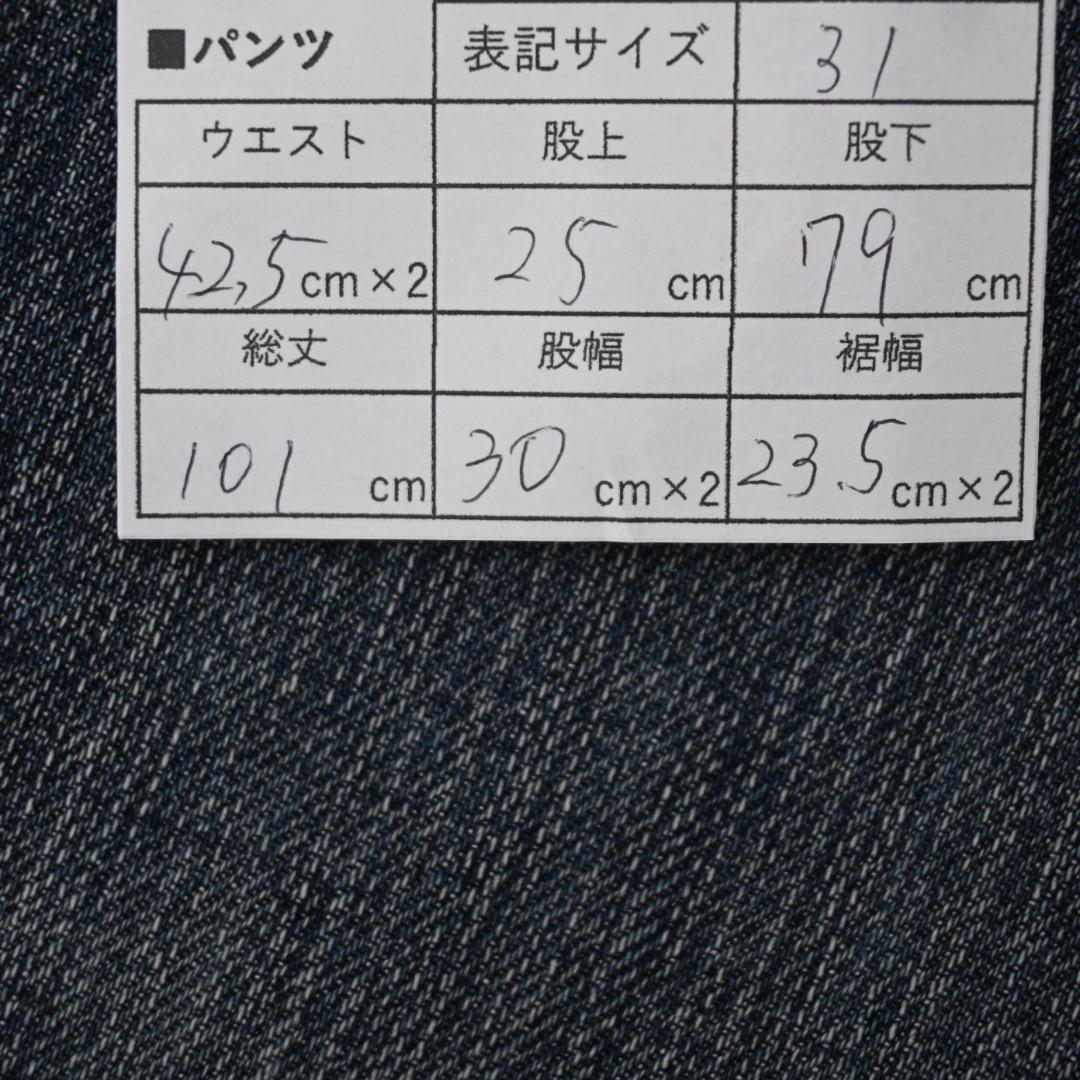 ■パンツ 表記サイズ 31
ウエスト 股上 股下
42,5cm×2 25 cm 79 cm
総丈 股幅 裾幅
101 cm 30 cm×2 23.5cm×2